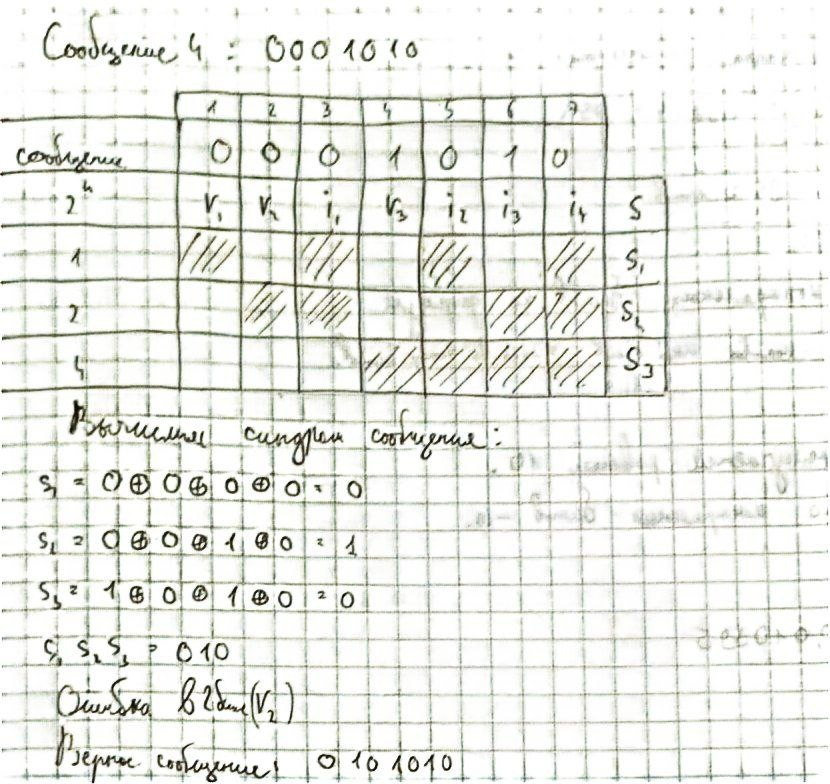 Сообщение 4 : 0001010
1 2 3 4 5 6 7
сообщение 0 0 0 1 0 1 0
2ⁿ r₁ r₂ i₁ r₃ i₂ i₃ i₄ S
1 S₁
2 S₂
4 S₃
Вычислим синдром сообщения:
S₁ = 0 ⊕ 0 ⊕ 0 ⊕ 0 = 0
S₂ = 0 ⊕ 0 ⊕ 1 ⊕ 0 = 1
S₃ = 1 ⊕ 0 ⊕ 1 ⊕ 0 = 0
S₁ S₂ S₃ = 010
Ошибка в 2 бите (r₂)
Верное сообщение: 0101010